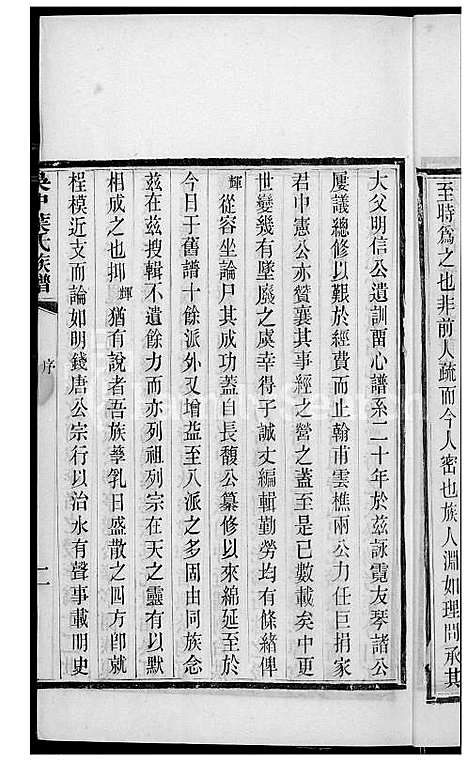 至時爲之也非前人疏而今人密也族人淵如理問承其
大父明信公遺訓畱心譜系二十年於茲詠霓友琴諸公
屢議總修以艱於經費而止翰甫雲樵兩公力任巨捐家
君中憲公亦贊襄其事經之營之蓋至是已數載矣中更
世變幾有墜廢之虞幸得子誠丈編輯勤勞均有條緒俾
輝從容坐論尸其成功蓋自長馥公纂修以來綿延至於
今日于舊譜十餘派外又增益至八派之多固由同族念
茲在茲搜輯不遺餘力而亦列祖列宗在天之靈有以默
相成之也抑輝猶有說者吾族孳乳日盛散之四方卽就
桯模近支而論如明錢唐公宗行以治水有聲事載明史
吳中葉氏族譜
序
二